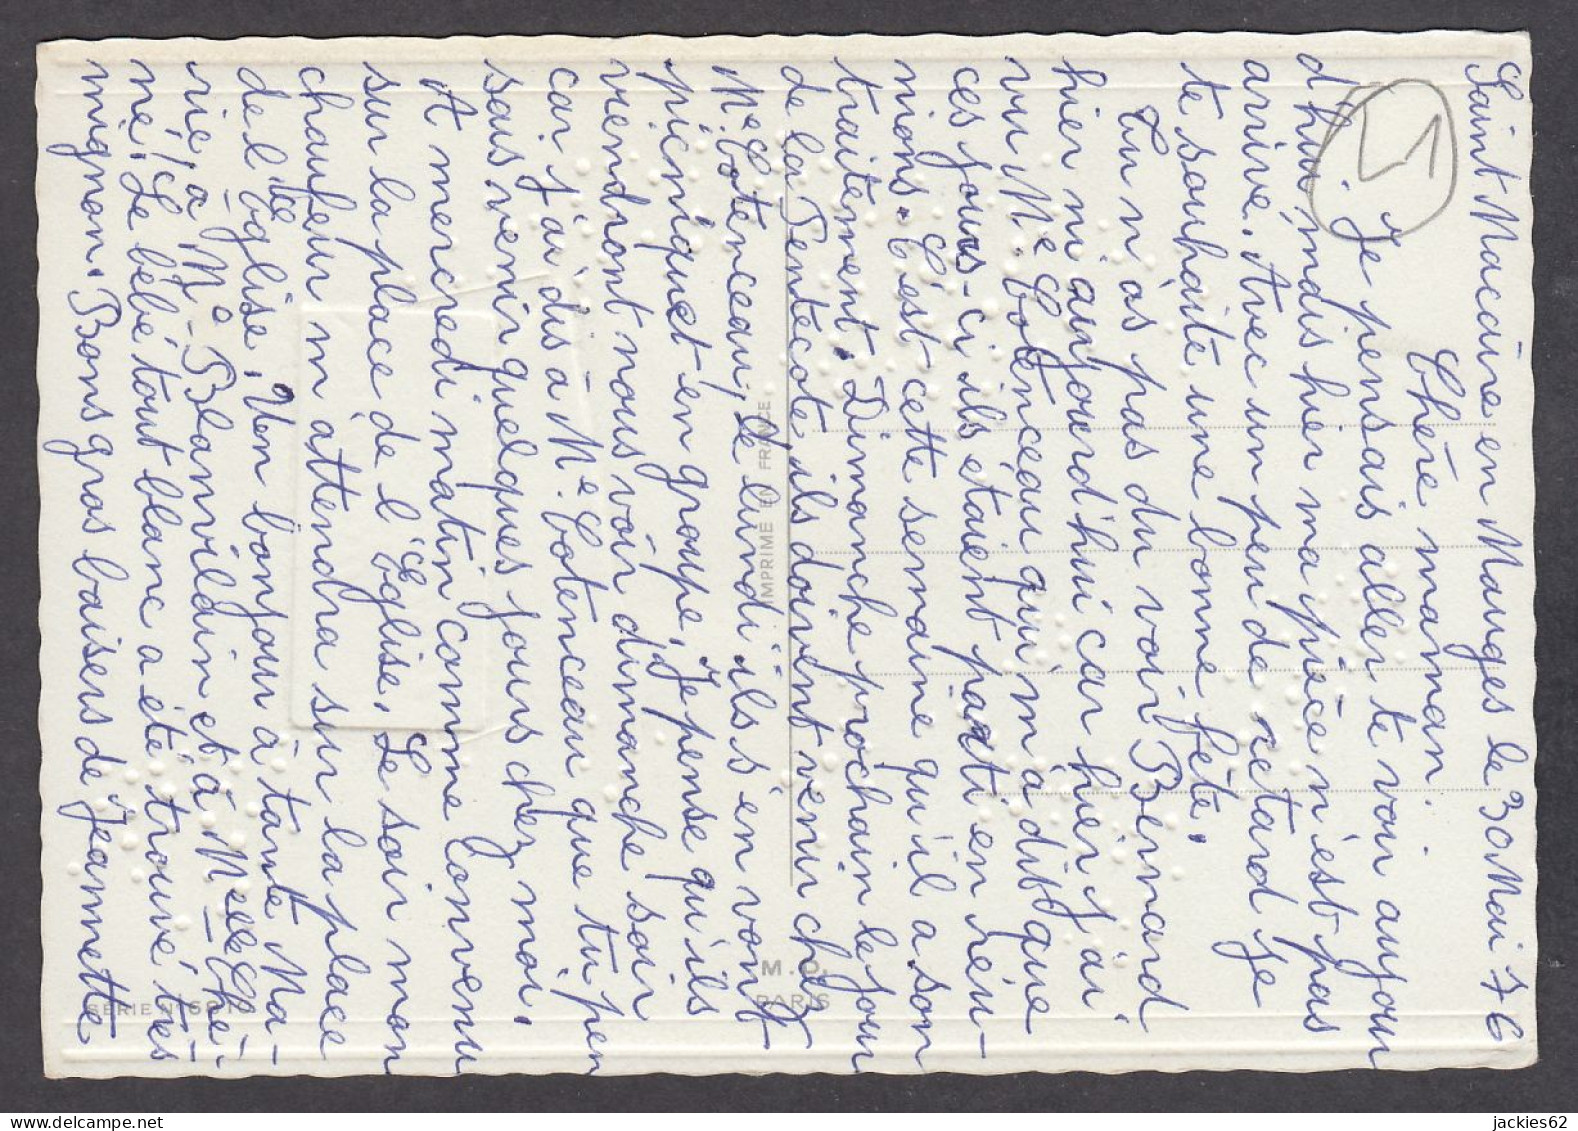 Saint Macaire en Mauges le 30 Mai 76
Chère maman.
Je pensais aller te voir aujour
d'hui mais hier ma pièce n'est pas
arrivé. Avec un peu de retard je
te souhaite une bonne fête.
Tu n'as pas du voir Bernard
hier ni aujourd'hui car hier j'ai
vu Me Cotenceau qui m'a dit que
ces jours-ci ils étaient parti en réu-
nions. C'est cette semaine qu'il a son
traitement. Dimanche prochain le jour
de la Pentecôte ils doivent venir chez
Me Cotenceau, le lundi ils s'en vont
pièniquet en groupe, je pense qu'ils
viendront nous voir dimanche soir
car j'ai dis à Me Cotenceau que tu pen
sais venir quelques jours chez moi.
A mercredi matin comme convenu
sur la place de l'Eglise. Le soir mon
chauffeur m'attendra sur la place
de l'Eglise. Un bonjour à tante Ma-
rie à Me Blanvilain et à Melle Ché-
né. Le bébé tout blanc a été trouvé très
mignon. Bons gros baisers de Jeannette
IMPRIMÉ EN FRANCE
M. D.
PARIS
SERIE N°
jackies62
www.delcampe.net